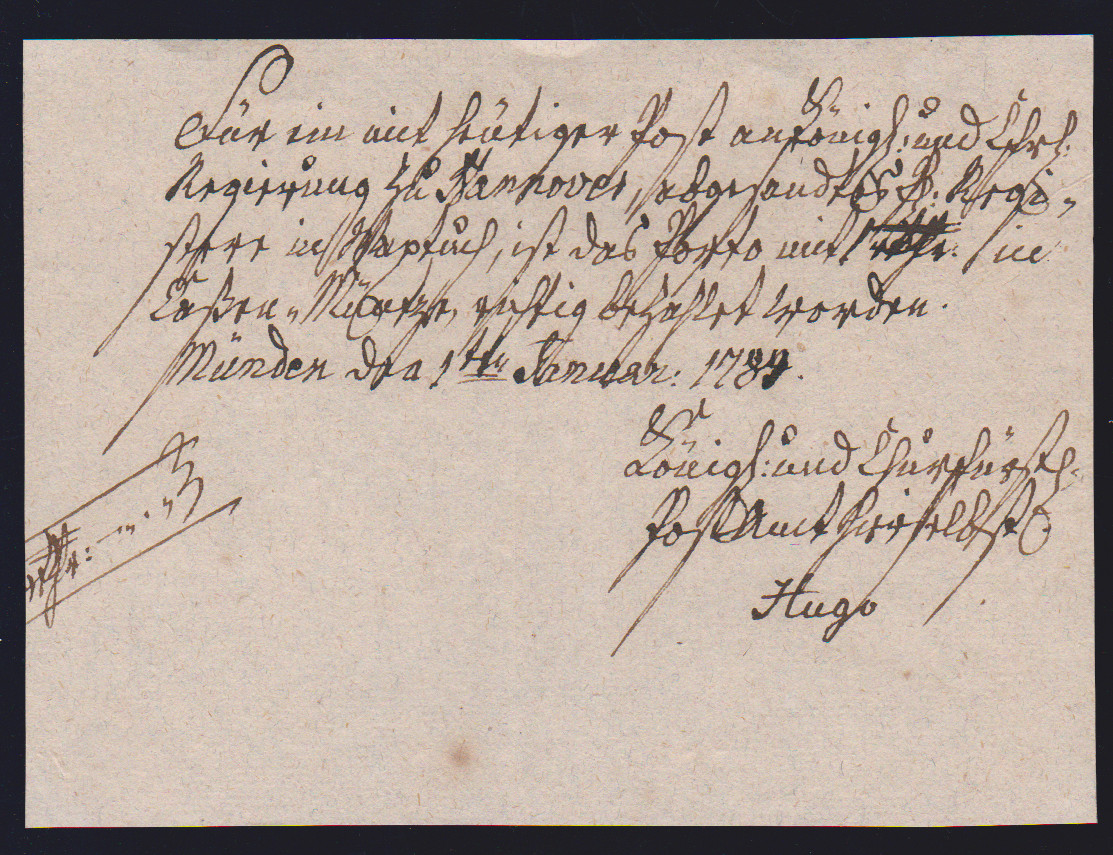 Für ein mit heutiger Post an Königl: und Chrf:
Regierung zu Hannover, abgesandtes P. Regi-
stere in Waxtuch, ist das Porto mit rthlr. in
Caßen-Müntze, richtig bezahlet worden.
Münden den 1ten Januar: 1789.
Königl: und Churfürstl.
Post Amt hierselbst.
Hugo
rthlr: